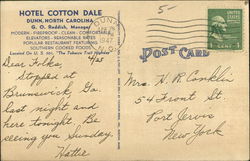 HOTEL COTTON DALE
DUNN, NORTH CAROLINA
G. O. Reddish, Manager
MODERN - FIREPROOF - CLEAN - COMFORTABLE
ELEVATORS - REASONABLE RATES
POPULAR RESTAURANT FEATURING
SOUTHERN COOKED FOODS
Located On U. S. 301 "The Tobacco Trail Highway"
DUNN
1947
N.C.
5-
POST CARD
4/25
Dear Folks,
Stopped at
Brunswick, Ga.
last night and
here tonight. Be
seeing you Sunday.
Hattie
Mrs. H. R. Conklin
54 Front St.
Port Jervis
New York